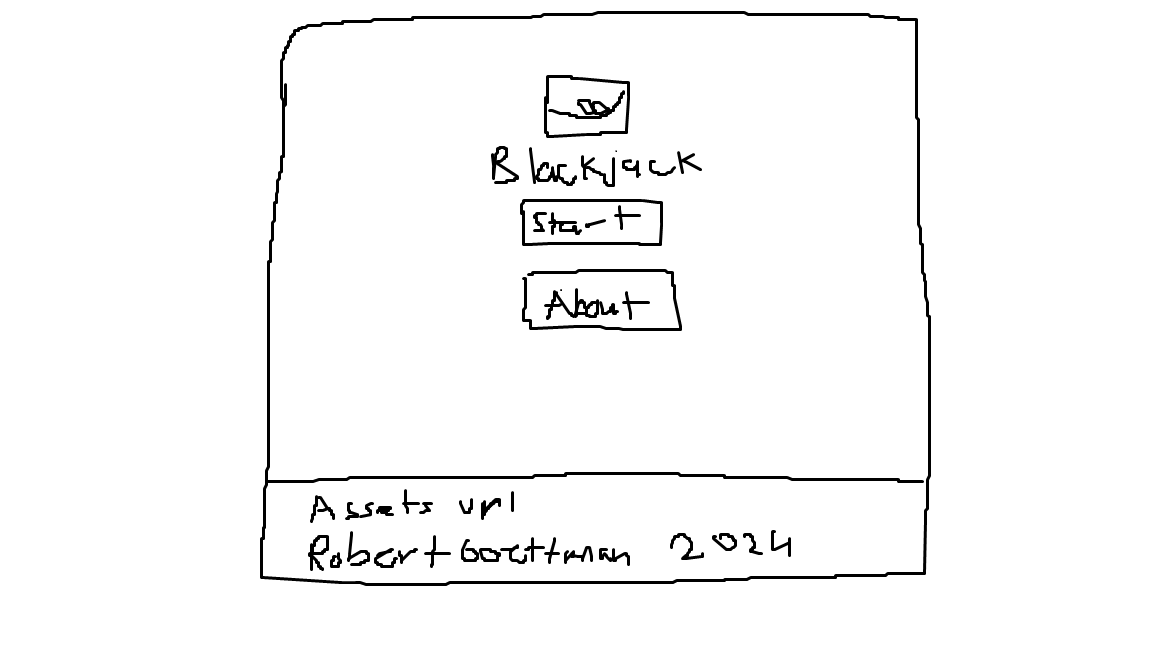 Blackjack
Start
About
Assets url
Robert Goettman 2024